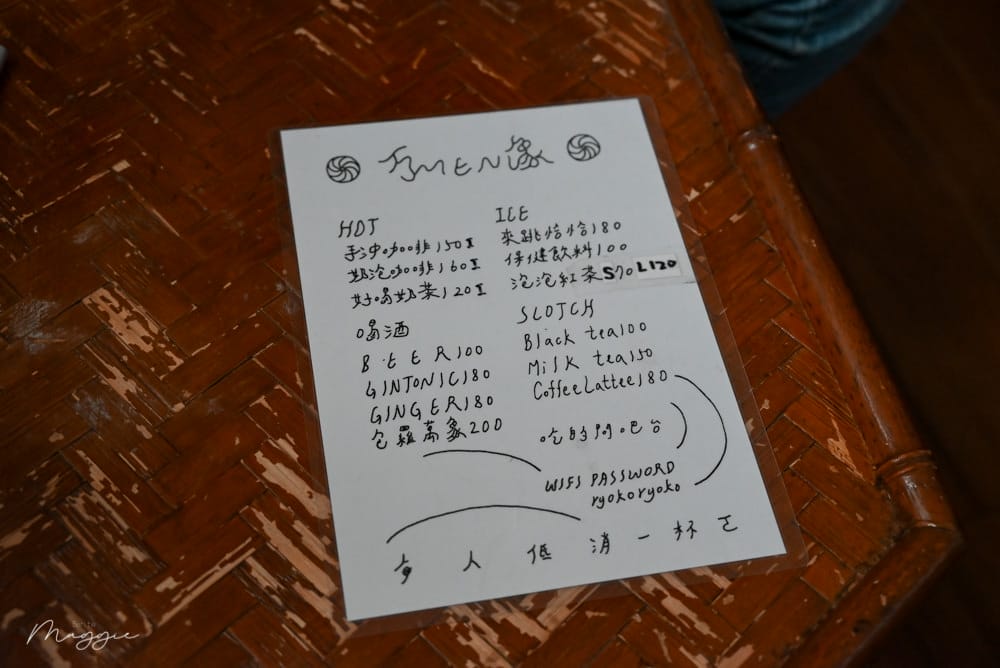 万MEN象
HOT
手沖咖啡150
奶泡咖啡160
好喝奶茶120
喝酒
BEER100
GINTONIC180
GINGER180
包羅萬象200
ICE
來跳恰恰180
保健飲料100
泡泡紅茶S70 L120
SCOTCH
Black tea100
Milk tea150
CoffeeLattee180
吃的問吧台
WIFI PASSWORD
ryokoryoko
每人低消一杯ㄛ
Maggie